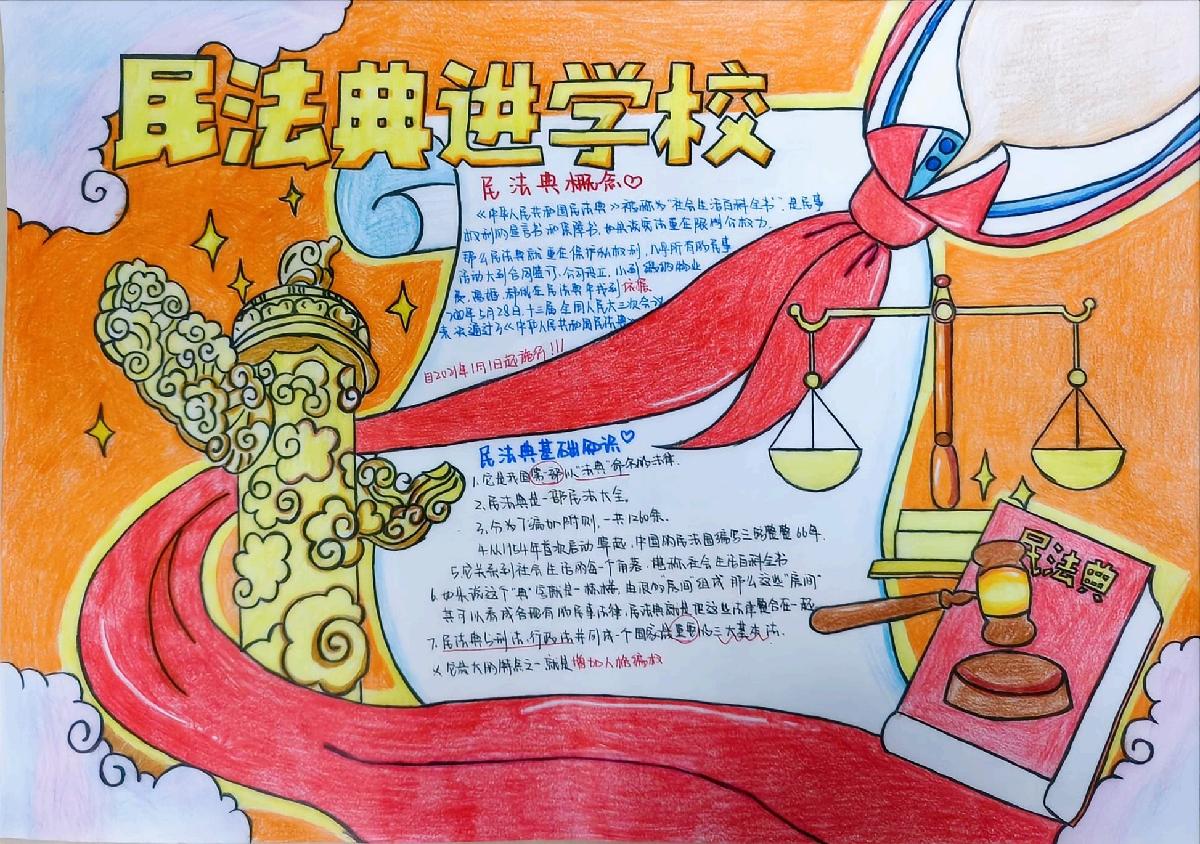 民法典进学校
民法典概念♡
《中华人民共和国民法典》被称为"社会生活百科全书",是民事
权利的宣言书和保障书,如果说宪法重在限制公权力,
那么民法典就重在保护私权利,几乎所有的民事
活动大到合同签订、公司设立,小到缴纳物业
费、离婚,都能在民法典中找到依据
2020年5月28日,十三届全国人民大三次会议
表决通过了《中华人民共和国民法典
自2021年1月1日起施行!!!
民法典基础知识♡
1.它是我国第一部以"法典"命名的法律.
2.民法典是一部民法大全.
3.分为7编加附则,一共1260条.
4.从1954年首次启动 ,中国的民法国编写三 整整66年.
5.它关系到社会生活的每个角落,堪称社会生活百科全书
6.如果说这个"典"字就是一栋楼,由很的"房间"组成 那么这些"房间"
其可以看成各种有的民事法律 民法典就是把这些法律整合在一起
7.民法典与刑法、行政法并列成一个国家最重要的三大基本法.
8.它最大的特点之一就是增加人格编权
民法典